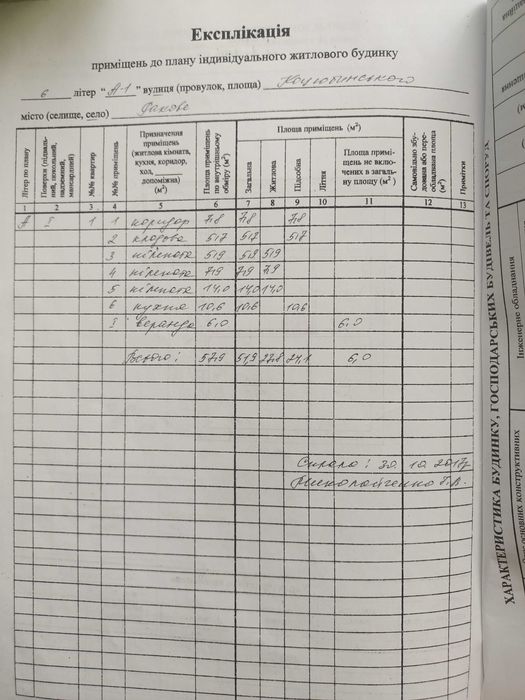 Експлікація
приміщень до плану індивідуального житлового будинку
в літер "А-1" вулиця (провулок, площа) Коцюбинського
місто (селище, село)
Літер по плану
Поверхи (підвальний, цокольний, надземний, мансардний)
№№ квартир
№№ приміщень
Призначення приміщень (житлова кімната, кухня, коридор, хол, допоміжна) (м²)
Площа приміщень по внутрішньому обміру (м²)
Площа приміщень (м²)
Загальна
Житлова
Підсобна
Літня
Площа приміщень не включених в загальну площу (м²)
Самовільно збудована або переобладнана площа (м²)
Примітки
1 2 3 4 5 6 7 8 9 10 11 12 13
А І 1 1 коридор 7,8 7,8 7,8
2 кладова 5,7 5,7 5,7
3 кімната 5,9 5,9 5,9
4 кімната 7,9 7,9 7,9
5 кімната 14,0 14,0 14,0
6 кухня 10,6 10,6 10,6
І веранда 6,0 6,0
Всього: 57,9 51,9 27,8 24,1 6,0
30.10.2017р
ХАРАКТЕРИСТИКА БУДИНКУ, ГОСПОДАРСЬКИХ БУДІВЕЛЬ ТА СПОРУД
Інженерне обладнання
основних конструктивних